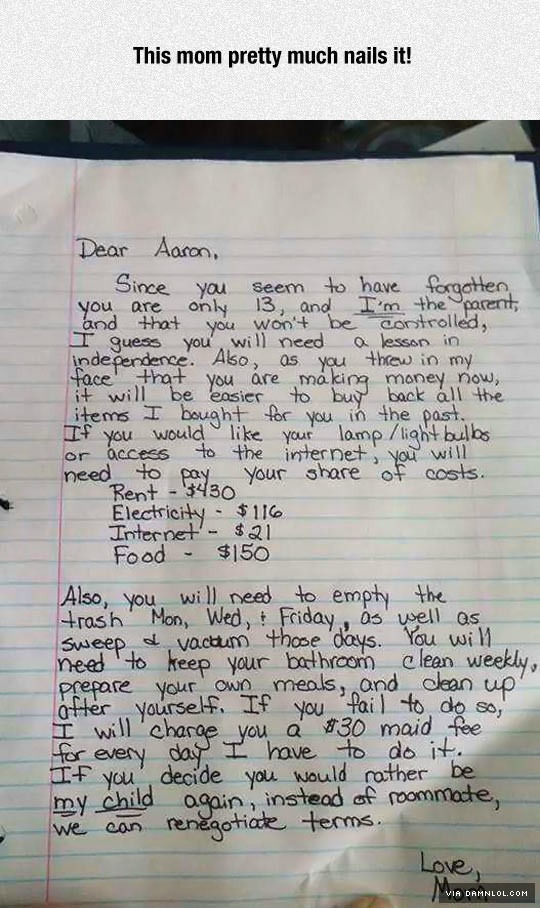 This mom pretty much nails it!
Dear Aaron,
Since you seem to have forgotten
you are only 13, and I'm the parent,
and that you won't be controlled,
I guess you will need a lesson in
independence. Also, as you threw in my
face that you are making money now,
it will be easier to buy back all the
items I bought for you in the past.
If you would like your lamp/lightbulbs
or access to the internet, you will
need to pay your share of costs.
Rent - $430
Electricity - $116
Internet - $21
Food - $150
Also, you will need to empty the
trash Mon, Wed, & Friday, as well as
sweep & vacuum those days. You will
need to keep your bathroom clean weekly,
prepare your own meals, and clean up
after yourself. If you fail to do so,
I will charge you a $30 maid fee
for every day I have to do it.
If you decide you would rather be
my child again, instead of roommate,
we can renegotiate terms.
Love,
Mom
VIA DAMNLOL.COM